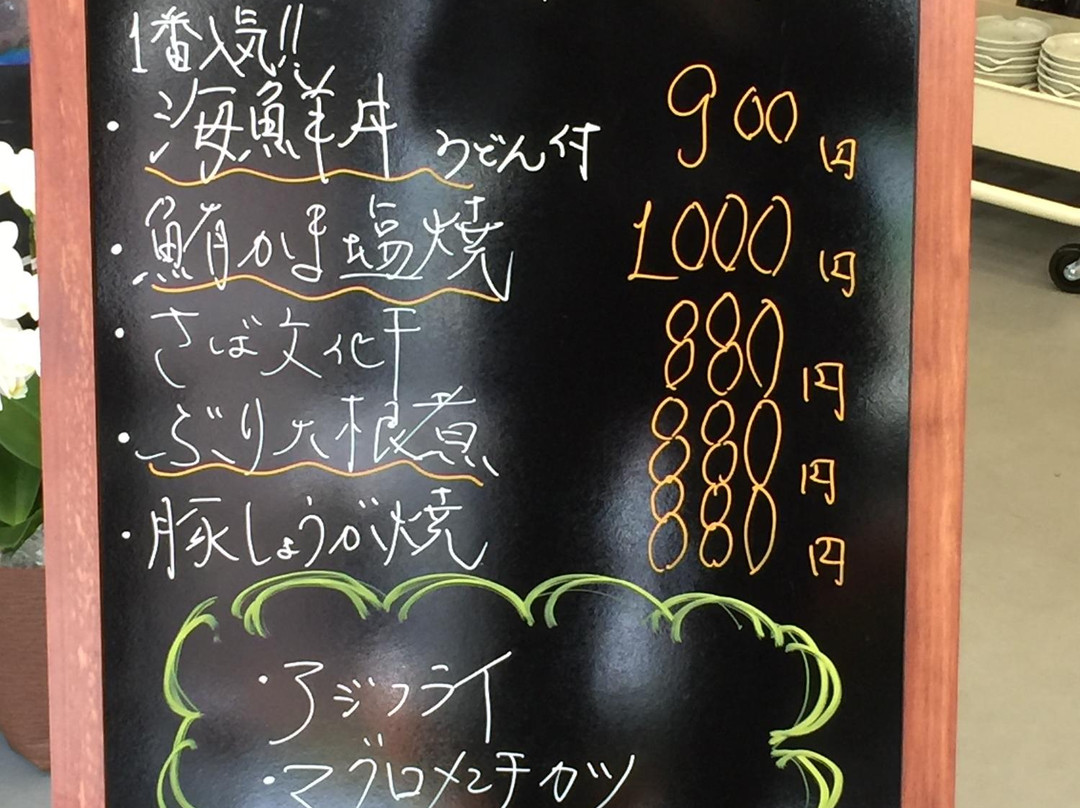 1番人気!!
・海鮮丼 うどん付 900円
・鮪かま塩焼 1000円
・さば文化干 880円
・ぶり大根煮 880円
・豚しょうが焼 880円
・アジフライ
・マグロメンチカツ